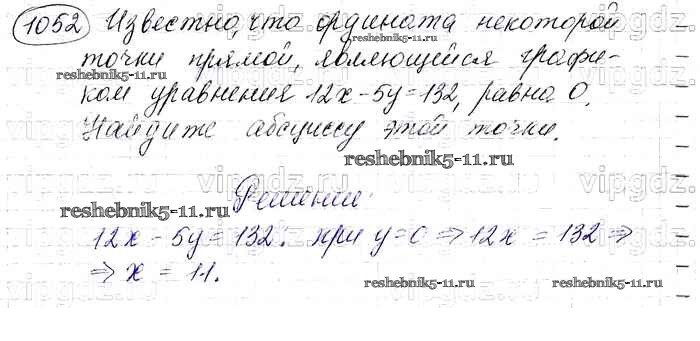 1052 Известно, что ордината некоторой
точки прямой, являющейся графи-
ком уравнения 12x-5y=132, равна 0.
Найдите абсциссу этой точки.
Решение:
12x-5y=132: при y=0 ⇒ 12x = 132 ⇒
⇒ x = 11.
reshebnik5-11.ru
reshebnik5-11.ru
reshebnik5-11.ru
reshebnik5-11.ru
reshebnik5-11.ru
reshebnik5-11.ru